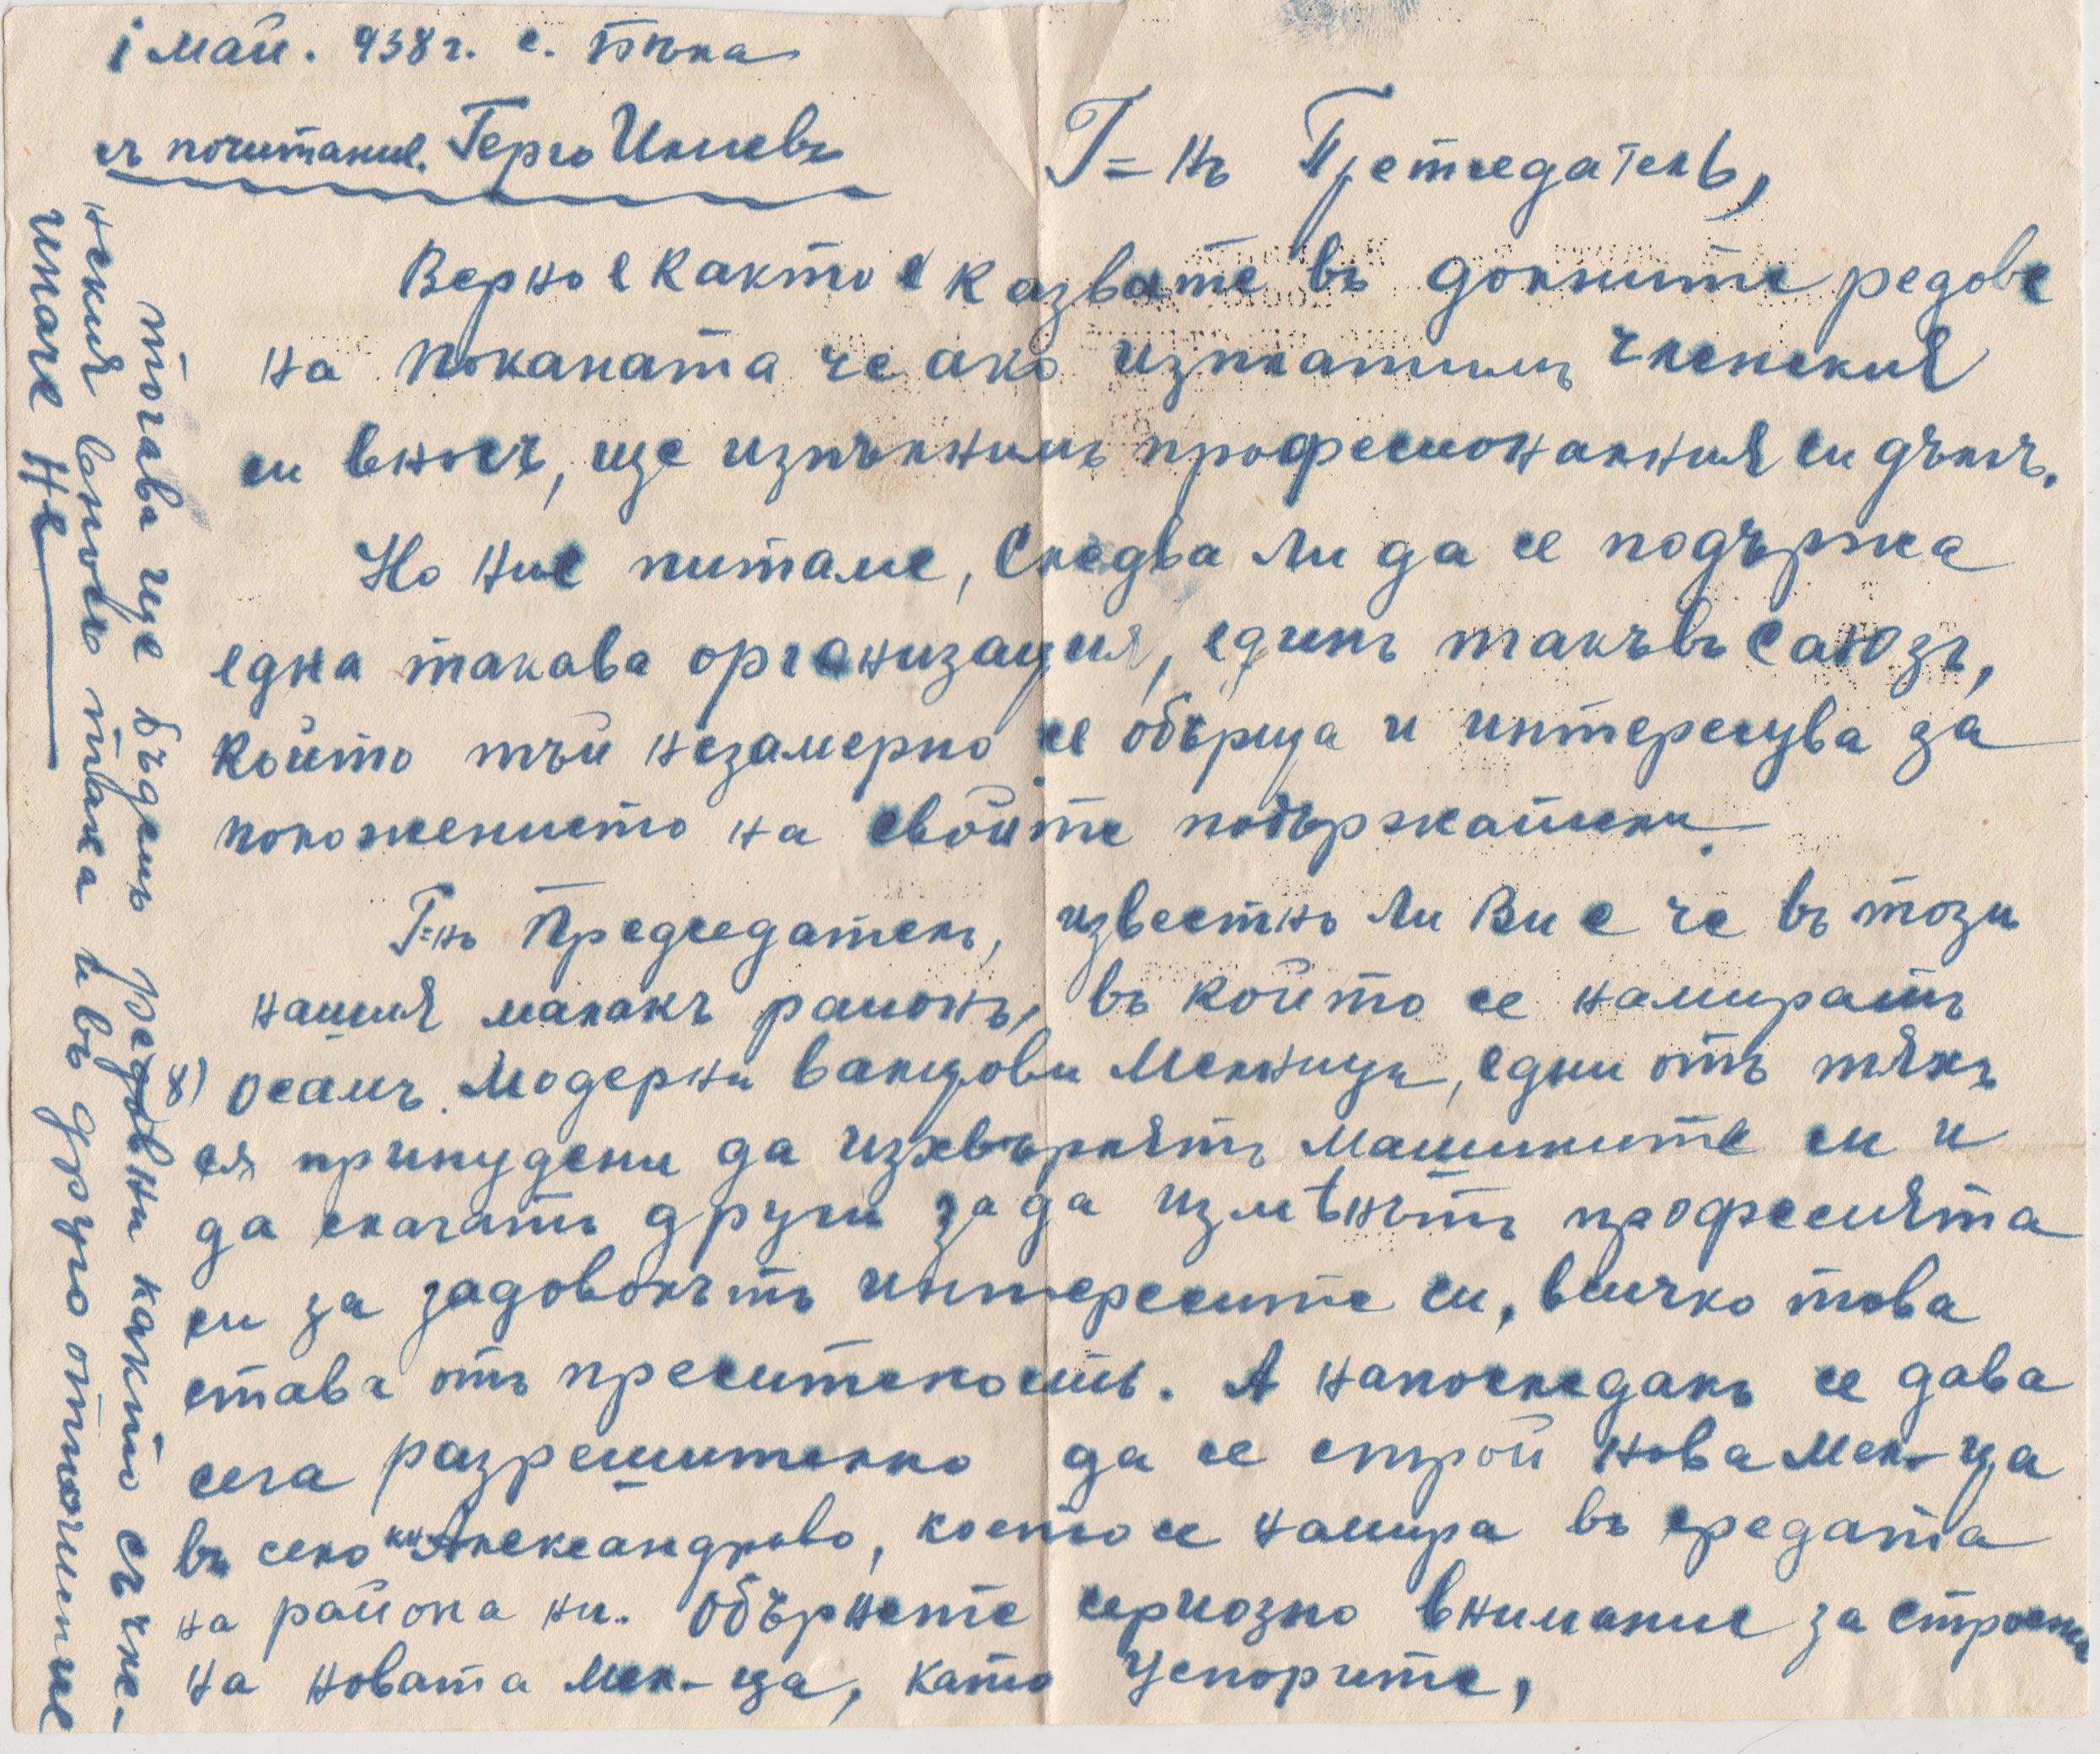 1 май. 938 г. с. Бѣла
съ почитание. Герго Илиевъ
Г=нъ Претседателъ,
Верно е както е казвате въ долните редове
на поканата че ако изплатимъ членския
си вносъ, ще изпълнимъ професионалния си дългъ.
Но ние питаме, Следва ли да се подържа
една такава организация, единъ такъвъ Саюзъ,
който тъй незамерно се обръща и интересува за
положението на свойте подържатели.
Г=нъ Председателъ, известно ли Ви е че въ този
нашия малакъ районъ, въ който се намиратъ
8) осамъ модерни валцови Мелници, едни отъ тяхъ
ся принудени да изхвърлятъ машините си и
да слагатъ други за да измѣнътъ професията
си за задоволътъ интересите си, всичко това
става отъ преситеностъ. А напоследакъ се дава
сега разрешително да се строй нова мел-ца
въ село кн Александрово, което се намира въ средата
на района ни. Обърнете сериозно внимание за строене
на новата мел-ца, като Успорите,
тогава ще бъдемъ редовни какъто съ чле-
нския вносъ така и въ друго отношение
иначе Не